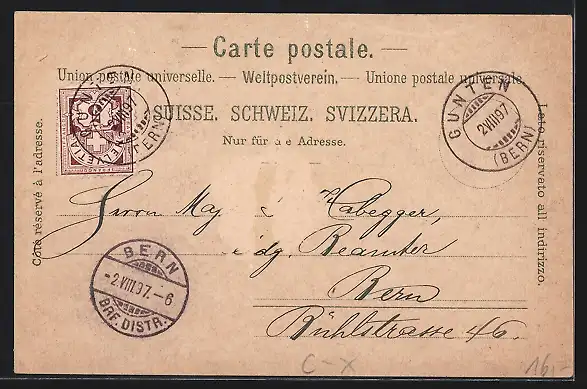 — Carte postale. —
Union postale universelle. — Weltpostverein. — Unione postale universale.
SUISSE. SCHWEIZ. SVIZZERA.
Nur für d e Adresse.
Côté réservé à l'adresse.
Lato riservato all indirizzo.
GUNTEN
2 VIII 97
(BERN)
GUNTEN
VIII 97
(BERN)
Herrn Maj Habegger,
eidg. Beamter
Bern
Bühlstrasse 46.
BERN
-2.VIII.97.-6
BRF. DISTR.
C-X
16,-